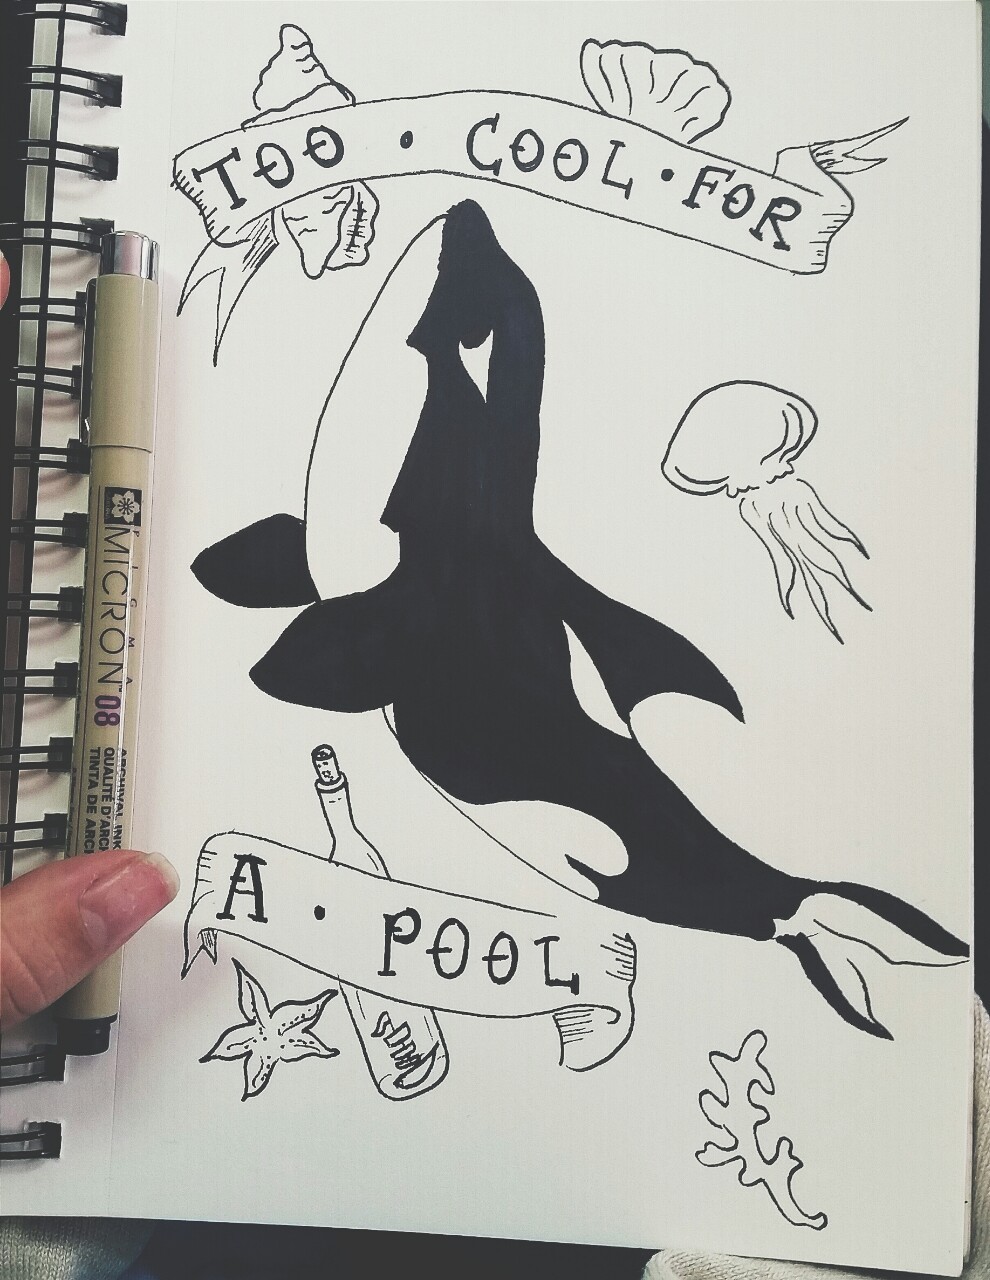 TOO • COOL • FOR
A • POOL
MICRON™ 08
ARCHIVAL INK
QUALITÉ D'ARCH
TINTA DE ARCH